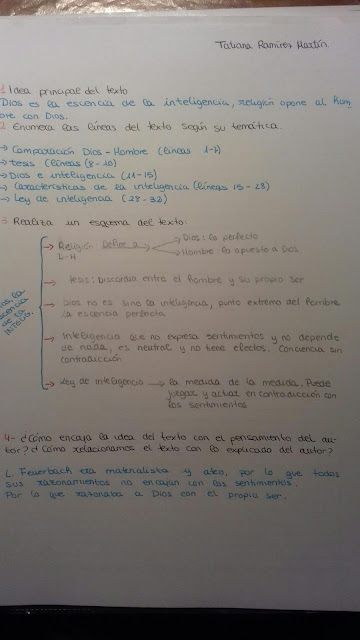 Tatiana Ramírez Martín.
1. Idea principal del texto
Dios es la escencia de la inteligencia, religión opone al hom
bre con Dios.
2. Enumera las líneas del texto según su temática.
→ Comparación Dios - Hombre (líneas 1-7)
→ tesis (líneas (8-10)
→ Dios e inteligencia (11-15)
→ Características de la inteligencia (líneas 15-28)
→ Ley de inteligencia (28-32)
3. Realiza un esquema del texto:
→ Religión define a → Dios: lo perfecto
→ Hombre lo opuesto a Dios
→ tesis: Discordia entre el hombre y su propio ser
→ Dios no es sino la inteligencia, punto extremo del hombre
la escencia perfecta
→ Inteligencia que no expresa sentimientos y no depende
de nada, es neutral y no tiene efectos. Conciencia sin
contradicción
→ Ley de inteligencia → la medida de la medida. Puede
juzgar y actuar en contradicción con
los sentimientos
4- ¿Cómo encaja la idea del texto con el pensamiento del au-
tor? ¿Cómo relacionamos el texto con lo explicado del autor?
L. Feuerbach era materialista y ateo, por lo que todos
sus razonamientos no encajan con los sentimientos.
Por lo que razonaba a Dios con el propio ser.